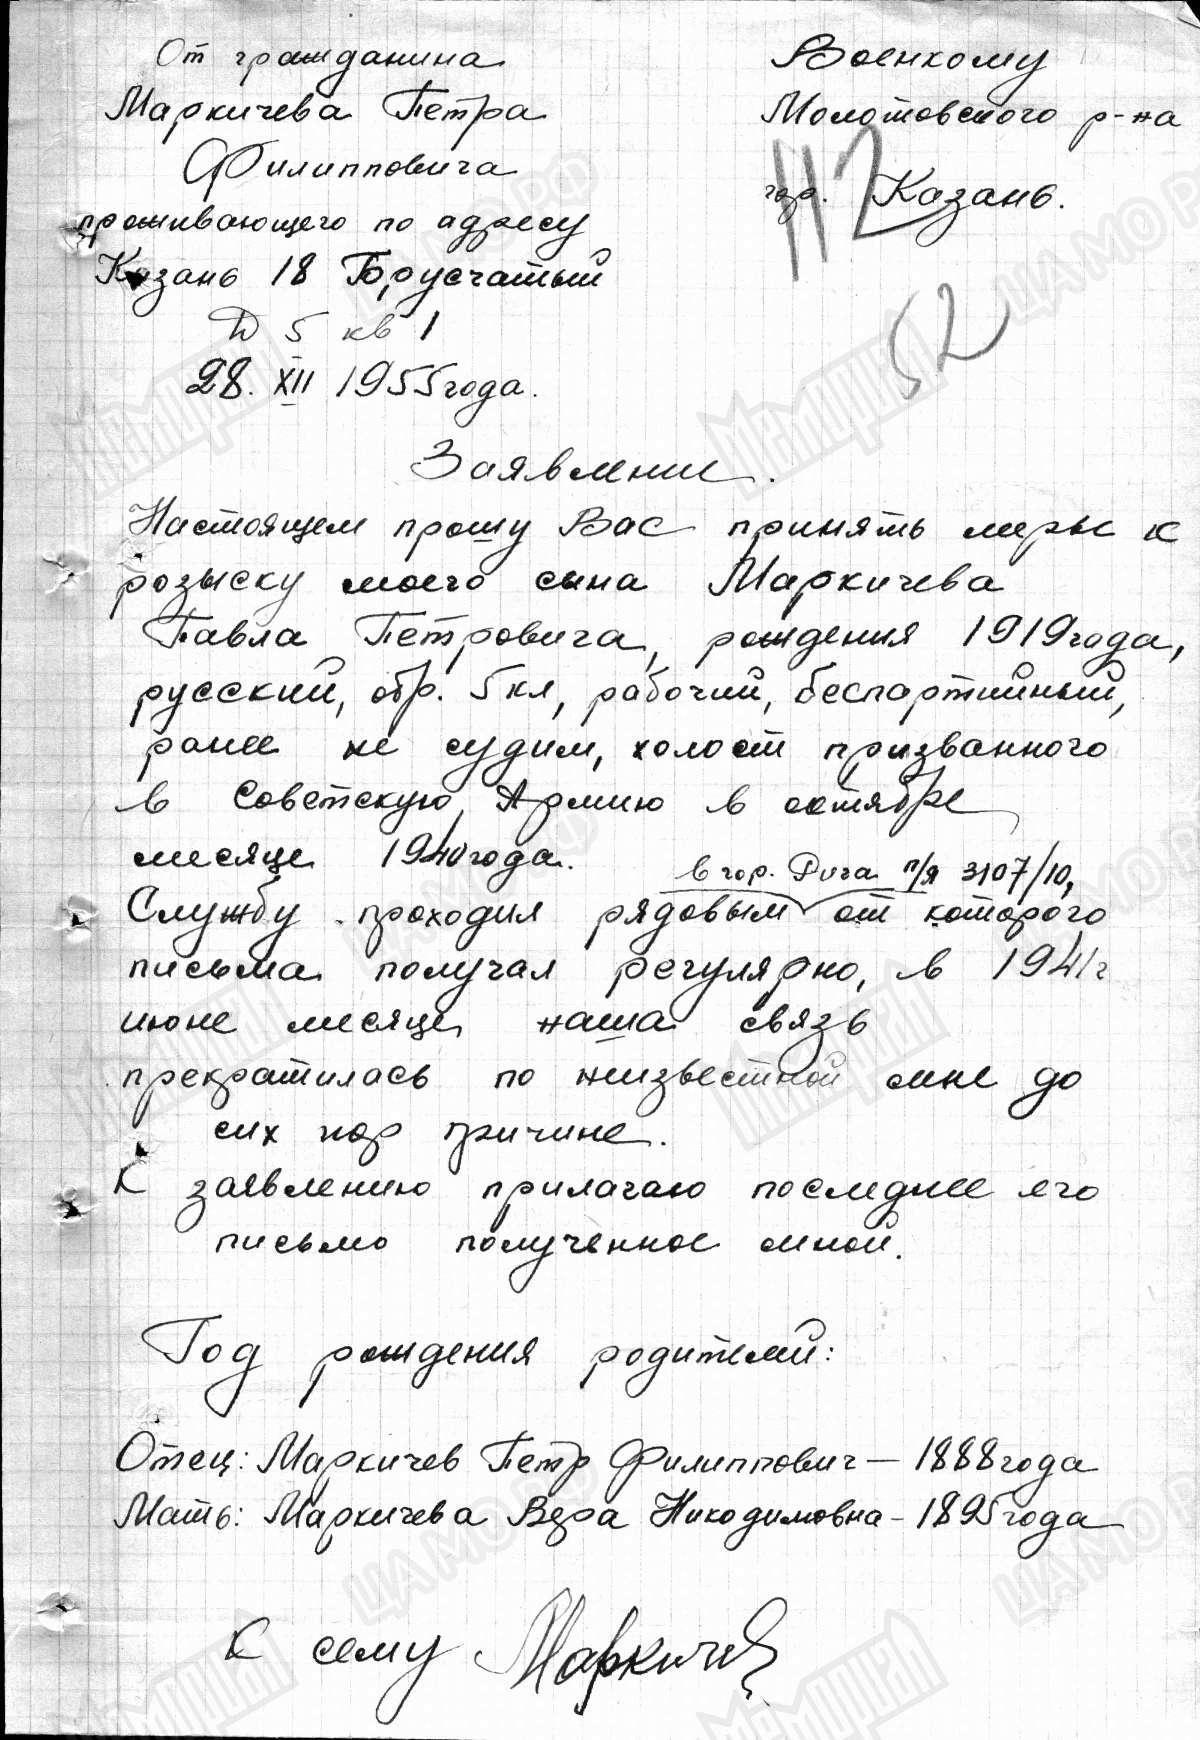 От гражданина
Маркичева Петра
Филипповича
проживающего по адресу
Казань 18
Д 5 кв 1
28. XII 1955 года.
Военкому
Молотовского р-на
гор. Казань.
112
52
Заявление.
Настоящем прошу Вас принять меры к
розыску моего сына Маркичева
Павла Петровича, рождения 1919 года,
русский, обр. 5 кл, рабочий, беспартийный,
ранее не судим, холост призванного
в Советскую Армию в октябре
месяце 1940 года.
в гор. Рига п/я 3107/10,
Службу проходил рядовым от которого
письма получал регулярно, в 1941 г
июне месяце наша связь
прекратилась по неизвестной мне до
сих пор причине.
К заявлению прилагаю последнее его
письмо полученное мной.
Год рождения родителей:
Отец: Маркичев Петр Филиппович — 1888 года
Мать: Маркичева Вера Никодимовна - 1895 года
К сему Маркичев
ЦАМО РФ
Мемориал